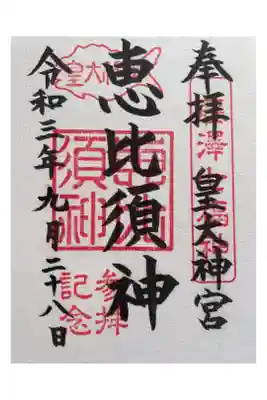 奉拝 皇大神宮
恵比須神
令和三年九月二十八日
参拝
記念